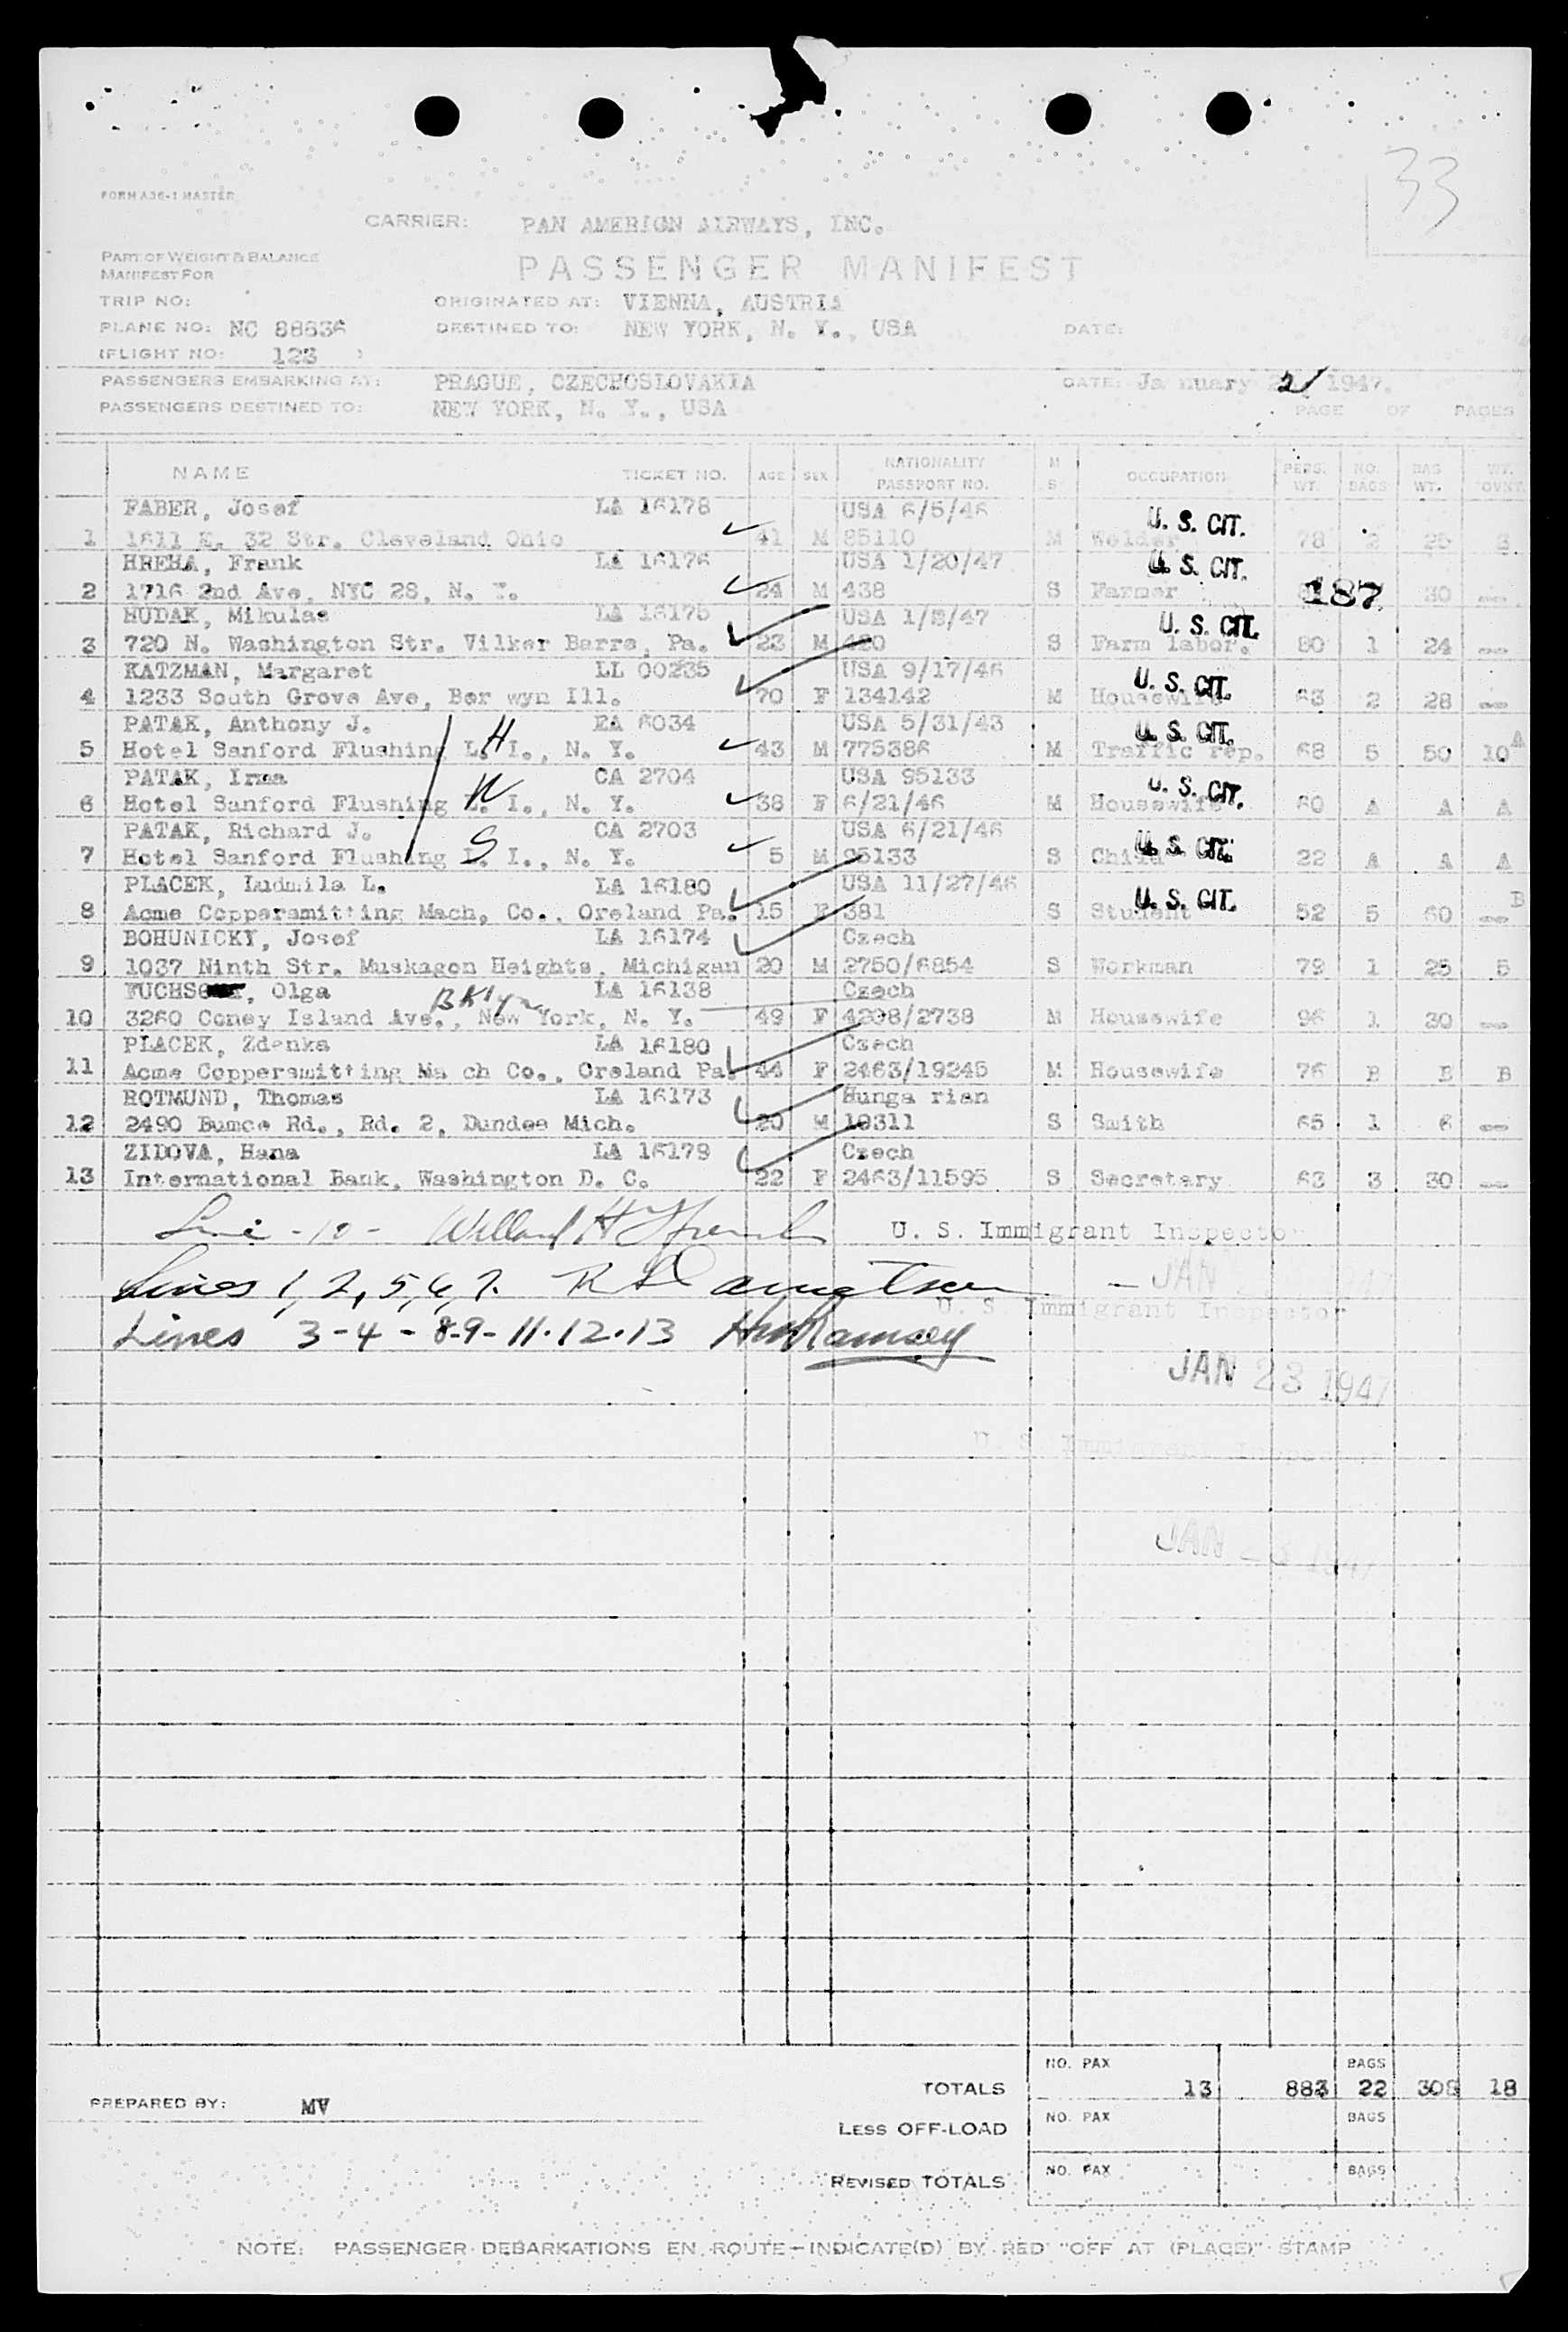 33
FORM A36-1 MASTER
CARRIER: PAN AMERICN AIRWAYS, INC.
PART OF WEIGHT & BALANCE
MANIFEST FOR
PASSENGER MANIFEST
TRIP NO: ORIGINATED AT: VIENNA, AUSTRIA
PLANE NO: NC 88836 DESTINED TO: NEW YORK, N. Y., USA DATE:
(FLIGHT NO: 123 )
PASSENGERS EMBARKING AT: PRAGUE, CZECHOSLOVAKIA DATE: January 1947.
PASSENGERS DESTINED TO: NEW YORK, N. Y., USA PAGE OF PAGES
NAME TICKET NO. AGE SEX NATIONALITY PASSPORT NO. M S OCCUPATION PERS. WT. NO. BAGS BAG WT. WT. OVNT.
FABER, Josef LA 16178 USA 6/5/46 U. S. CIT.
1 1611 E. 32 Str. Cleveland Ohio 41 M 85110 M Welder 78 2 25 3
HREHA, Frank LA 16176 USA 1/20/47 U. S. CIT.
2 1716 2nd Ave, NYC 28, N. Y. 24 M 438 S Farmer 187 30
HUDAK, Mikulas LA 16175 USA 1/8/47 U. S. CIT.
3 720 N. Washington Str. Vilker Barre, Pa. 23 M 420 S Farm labor. 80 1 24
KATZMAN, Margaret LL 00235 USA 9/17/46 U. S. CIT.
4 1233 South Grove Ave, Ber wyn Ill. 70 F 134142 M Housewife 63 2 28
PATAK, Anthony J. EA 6034 USA 5/31/43 U. S. CIT.
5 Hotel Sanford Flushing L. I., N. Y. H 43 M 775386 M Traffic rep. 68 5 50 10 A
PATAK, Irma CA 2704 USA 95133 U. S. CIT.
6 Hotel Sanford Flushing L. I., N. Y. W 38 F 6/21/46 M Housewife 60 A A A
PATAK, Richard J. CA 2703 USA 6/21/46
7 Hotel Sanford Flushing L. I., N. Y. S 5 M 95133 S Child U. S. CIT. 22 A A A
PLACEK, Ludmila L. LA 16180 USA 11/27/46
8 Acme Coppersmitting Mach, Co., Oreland Pa. 15 F 381 S Student U. S. CIT. 52 5 60 B
BOHUNICKY, Josef LA 16174 Czech
9 1037 Ninth Str. Muskagon Heights, Michigan 20 M 2750/6854 S Workman 79 1 25 5
FUCHS, Olga LA 16138 Czech
10 3260 Coney Island Ave., New York, N. Y. Bklyn 49 F 4298/2738 M Housewife 96 1 30
PLACEK, Zdenka LA 16180 Czech
11 Acme Coppersmitting Ma ch Co., Oreland Pa. 44 F 2463/19245 M Housewife 76 B B B
ROTMUND, Thomas LA 16173 Hunga rian
12 2490 Bumce Rd., Rd. 2, Dundee Mich. 20 M 19311 S Smith 65 1 6
ZIDOVA, Hana LA 16179 Czech
13 International Bank, Washington D. C. 22 F 2463/11595 S Secretary 63 3 30
Line -10- U. S. Immigrant Inspector
Lines 1, 2, 5, 6, 7. JAN
U. S. Immigrant Inspector
Lines 3-4-8-9-11-12-13 Ramsey
JAN 23 1947
U. S. Immigrant Inspector
JAN 23 1947
TOTALS NO. PAX 13 883 BAGS 22 308 18
PREPARED BY: MV
LESS OFF-LOAD NO. PAX BAGS
REVISED TOTALS NO. PAX BAGS
NOTE: PASSENGER DEBARKATIONS EN ROUTE—INDICATE(D) BY RED "OFF AT (PLACE)" STAMP